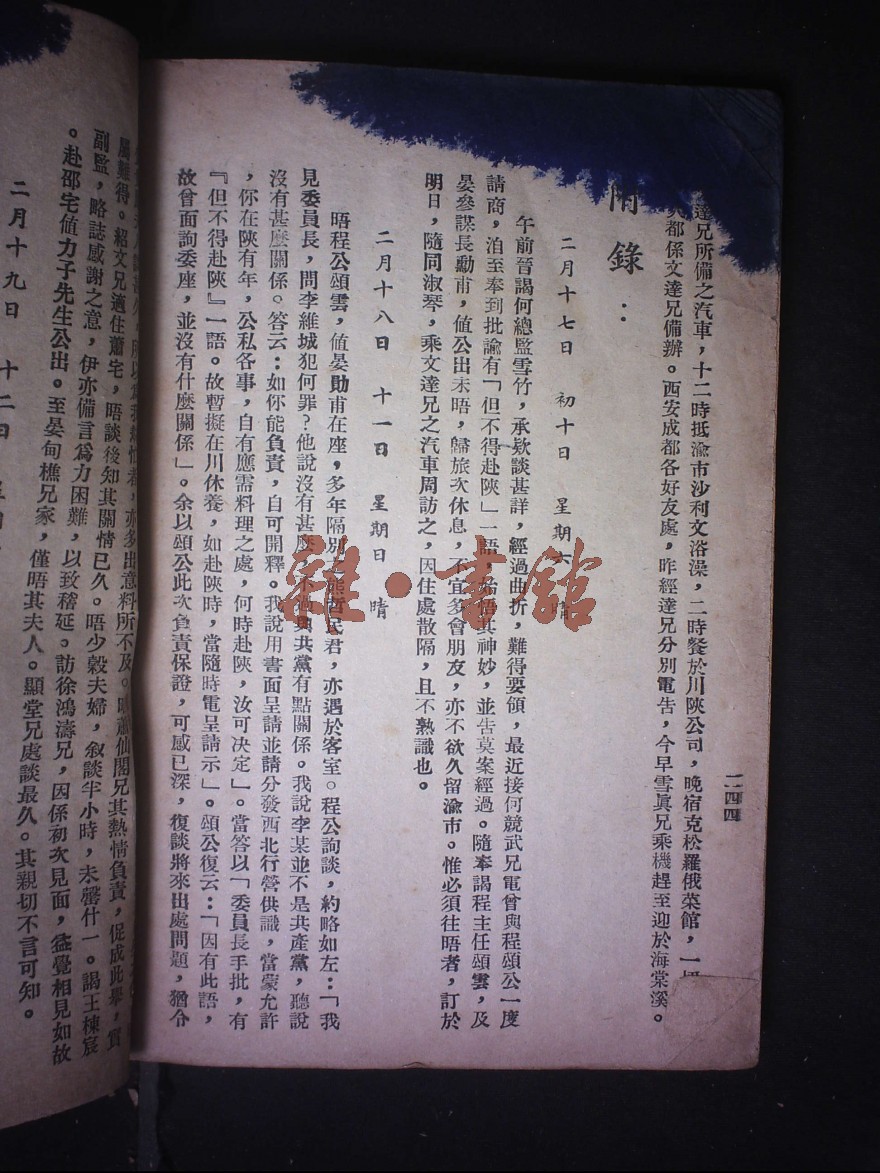 達兄所備之汽車，十二時抵渝市沙利文浴澡，二時餐於川陝公司，晚宿克松羅俄菜館，一切
都係文達兄備辦。西安成都各好友處，昨經達兄分別電告，今早雪眞兄乘機趕至迎於海棠溪。
附錄：
二月十七日 初十日 星期六 晴
午前晉謁何總監雪竹，承欵談甚詳，經過曲折，難得要領，最近接何競武兄電曾與程頌公一度
請商，洎至奉到批諭有「但不得赴陝」一語，始悟其神妙，並告莫案經過。隨奉謁程主任頌雲，及
晏參謀長勳甫，値公出未晤，歸旅次休息，不宜多會朋友，亦不欲久留渝市。惟必須往晤者，訂於
明日，隨同淑琴，乘文達兄之汽車周訪之，因住處散隔，且不熟識也。
二月十八日 十一日 星期日 晴
晤程公頌雲，値晏勛甫在座，多年隔別之熊哲民君，亦遇於客室。程公詢談，約略如左：「我
見委員長，問李維城犯何罪？他說沒有甚麼，不過與共黨有點關係。我說李某並不是共產黨，聽說
沒有甚麼關係。答云：如你能負責，自可開釋。我說用書面呈請並請分發西北行營供識，當蒙允許
，你在陝有年，公私各事，自有應需料理之處，何時赴陝，汝可决定」。當答以「委員長手批，有
『但不得赴陝』一語。故暫擬在川休養，如赴陝時，當隨時電呈請示」。頌公復云：「因有此語，
故曾面詢委座，並沒有什麼關係」。余以頌公此次負責保證，可感已深，復談將來出處問題，猶令
二四四
所以爲我熱忱者，亦多出意料所不及。晤蕭仙閣兄其熱情負責，促成此舉，實
屬難得。紹文兄適住蕭宅，晤談後知其關情已久。晤少毅夫婦，叙談半小時，未罄什一。謁王棟宸
副監，略誌感謝之意，伊亦備言爲力困難，以致稽延。訪徐鴻濤兄，因係初次見面，益覺相見如故
。赴邵宅値力子先生公出。至晏甸樵兄家，僅晤其夫人。顯堂兄處談最久。其親切不言可知。
二月十九日 十二日
雜·書館